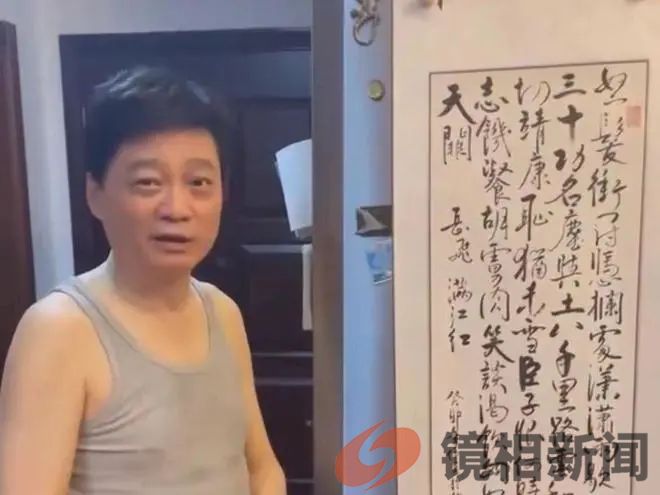 怒髮衝冠憑欄處瀟瀟雨歇
三十功名塵與土八千里路雲
切靖康恥猶未雪臣子恨何時
志饑餐胡虜肉笑談渴飲匈
天闕 岳飛 滿江红 癸卯
镜相新闻